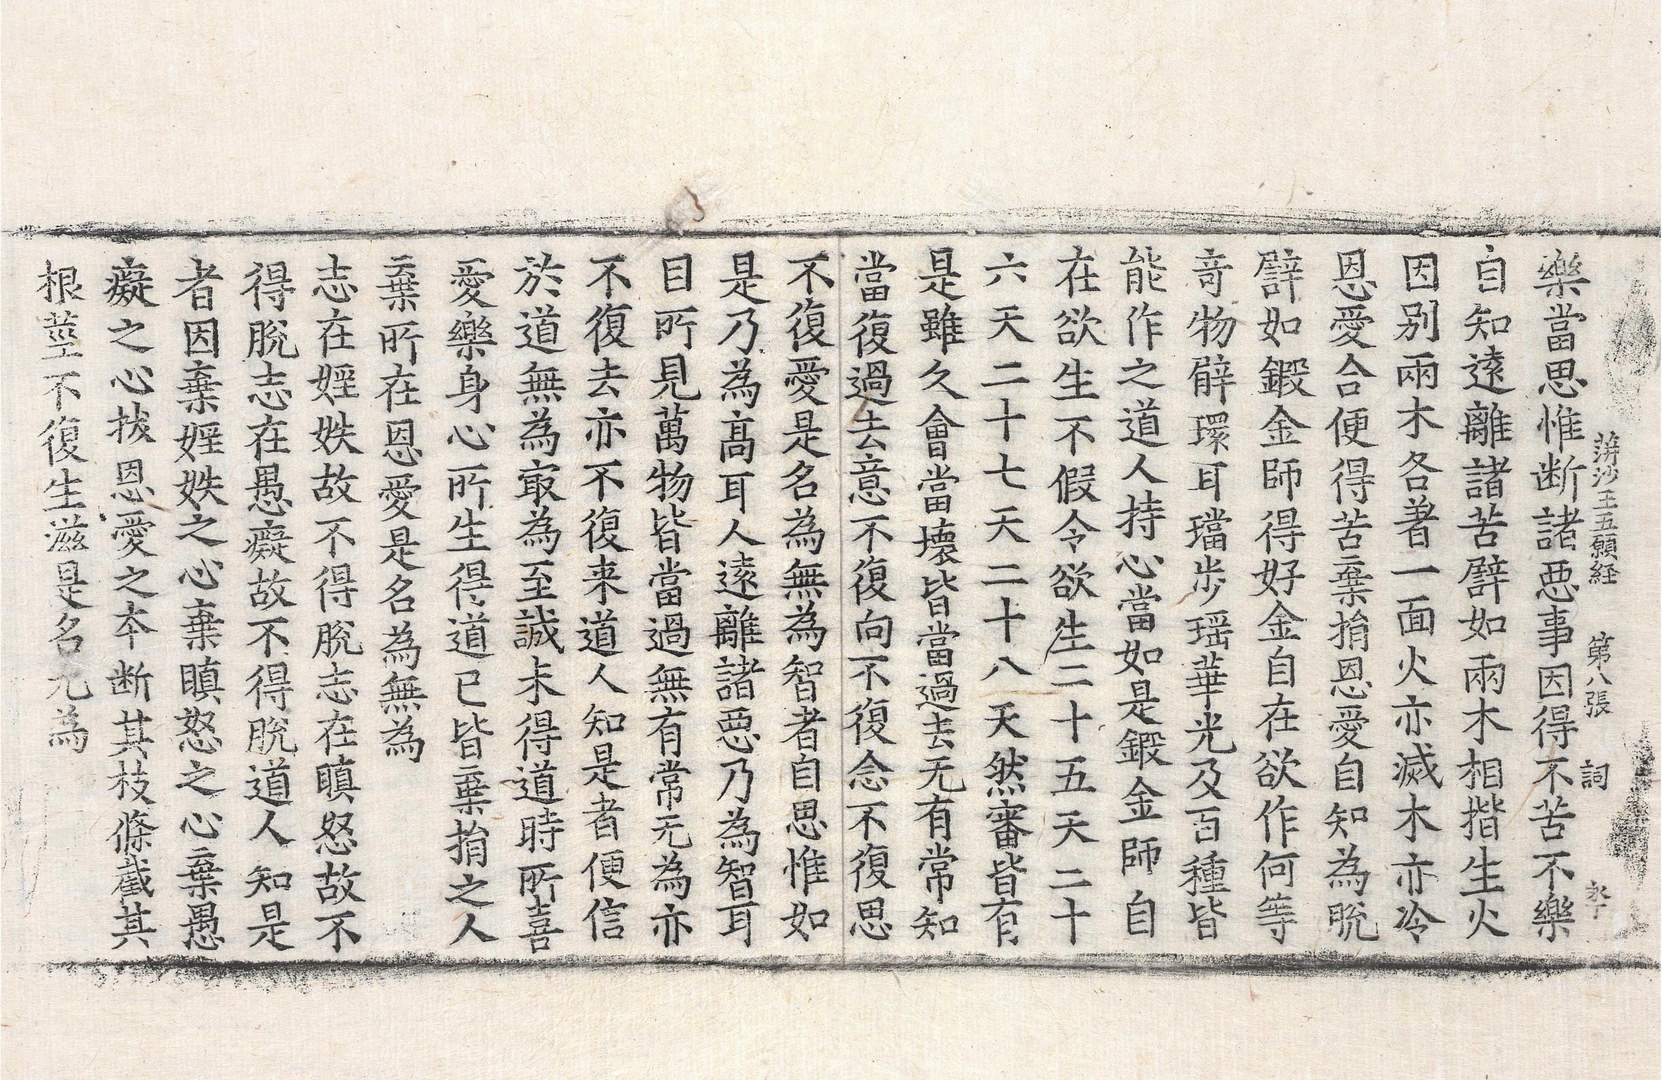 萍沙王五願経 第八張 詞
樂當思惟断諸惡事因得不苦不樂
自知遠離諸苦譬如兩木相揩生火
因別兩木各著一面火亦滅木亦冷
恩愛合便得苦棄捐恩愛自知為脫
譬如鍛金師得好金自在欲作何等
奇物臂環耳璫步瑶華光及百種皆
能作之道人持心當如是鍛金師自
在欲生不假令欲生二十五天二十
六天二十七天二十八天然審皆有
是雖久會當壞皆當過去无有常知
當復過去意不復向不復念不復思
不復愛是名為無為智者自思惟如
是乃為髙耳人遠離諸惡乃為智耳
目所見萬物皆當過無有常无為亦
不復去亦不復来道人知是者便信
於道無為㝡為至誠未得道時所喜
愛樂身心所生得道已皆棄捐之人
棄所在恩愛是名為無為
志在婬妷故不得脫志在瞋怒故不
得脫志在愚癡故不得脫道人知是
者因棄婬妷之心棄瞋怒之心棄愚
癡之心拔恩愛之本断其枝條截其
根莖不復生滋是名无為